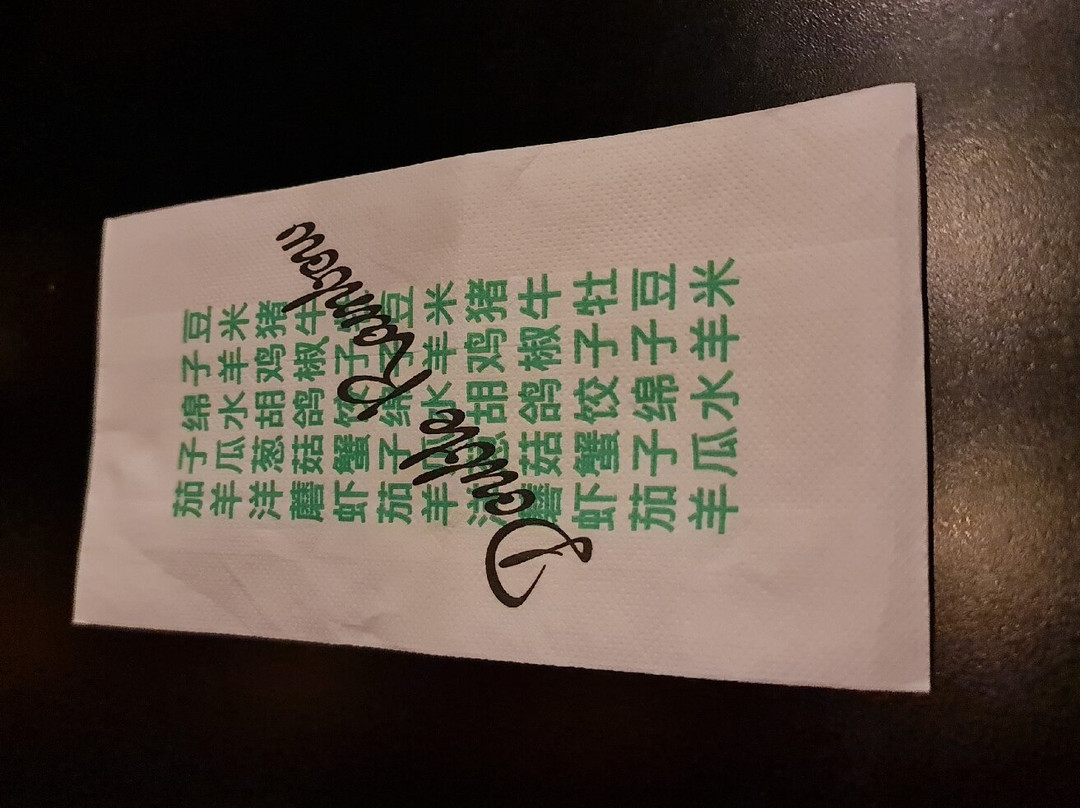 茄子绵子豆
羊瓜水羊米
洋葱胡鸡猪
蘑菇鸽椒牛
虾蟹饺子牡
茄子绵子豆
羊瓜水羊米
洋葱胡鸡猪
蘑菇鸽椒牛
虾蟹饺子牡
茄子绵子豆
羊瓜水羊米
Double Rainbow